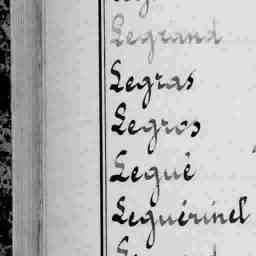 Legrand
Legras
Legros
Legué
Leguérinel